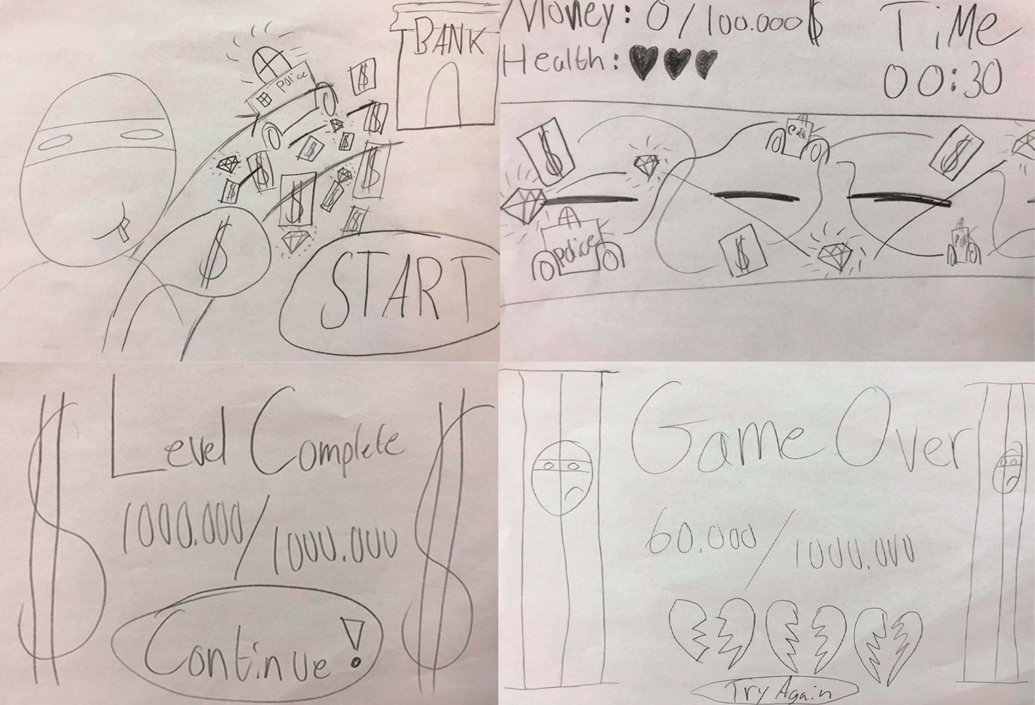 BANK
Police
$
$
$
$
$
$
$
$
$
START
Money: 0/100.000$
Health:
TiMe
00:30
$
Police
$
Police
$
Level Complete
1000.000/1000.000
Continue!
$
$
Game Over
60.000/1000.000
Try Again